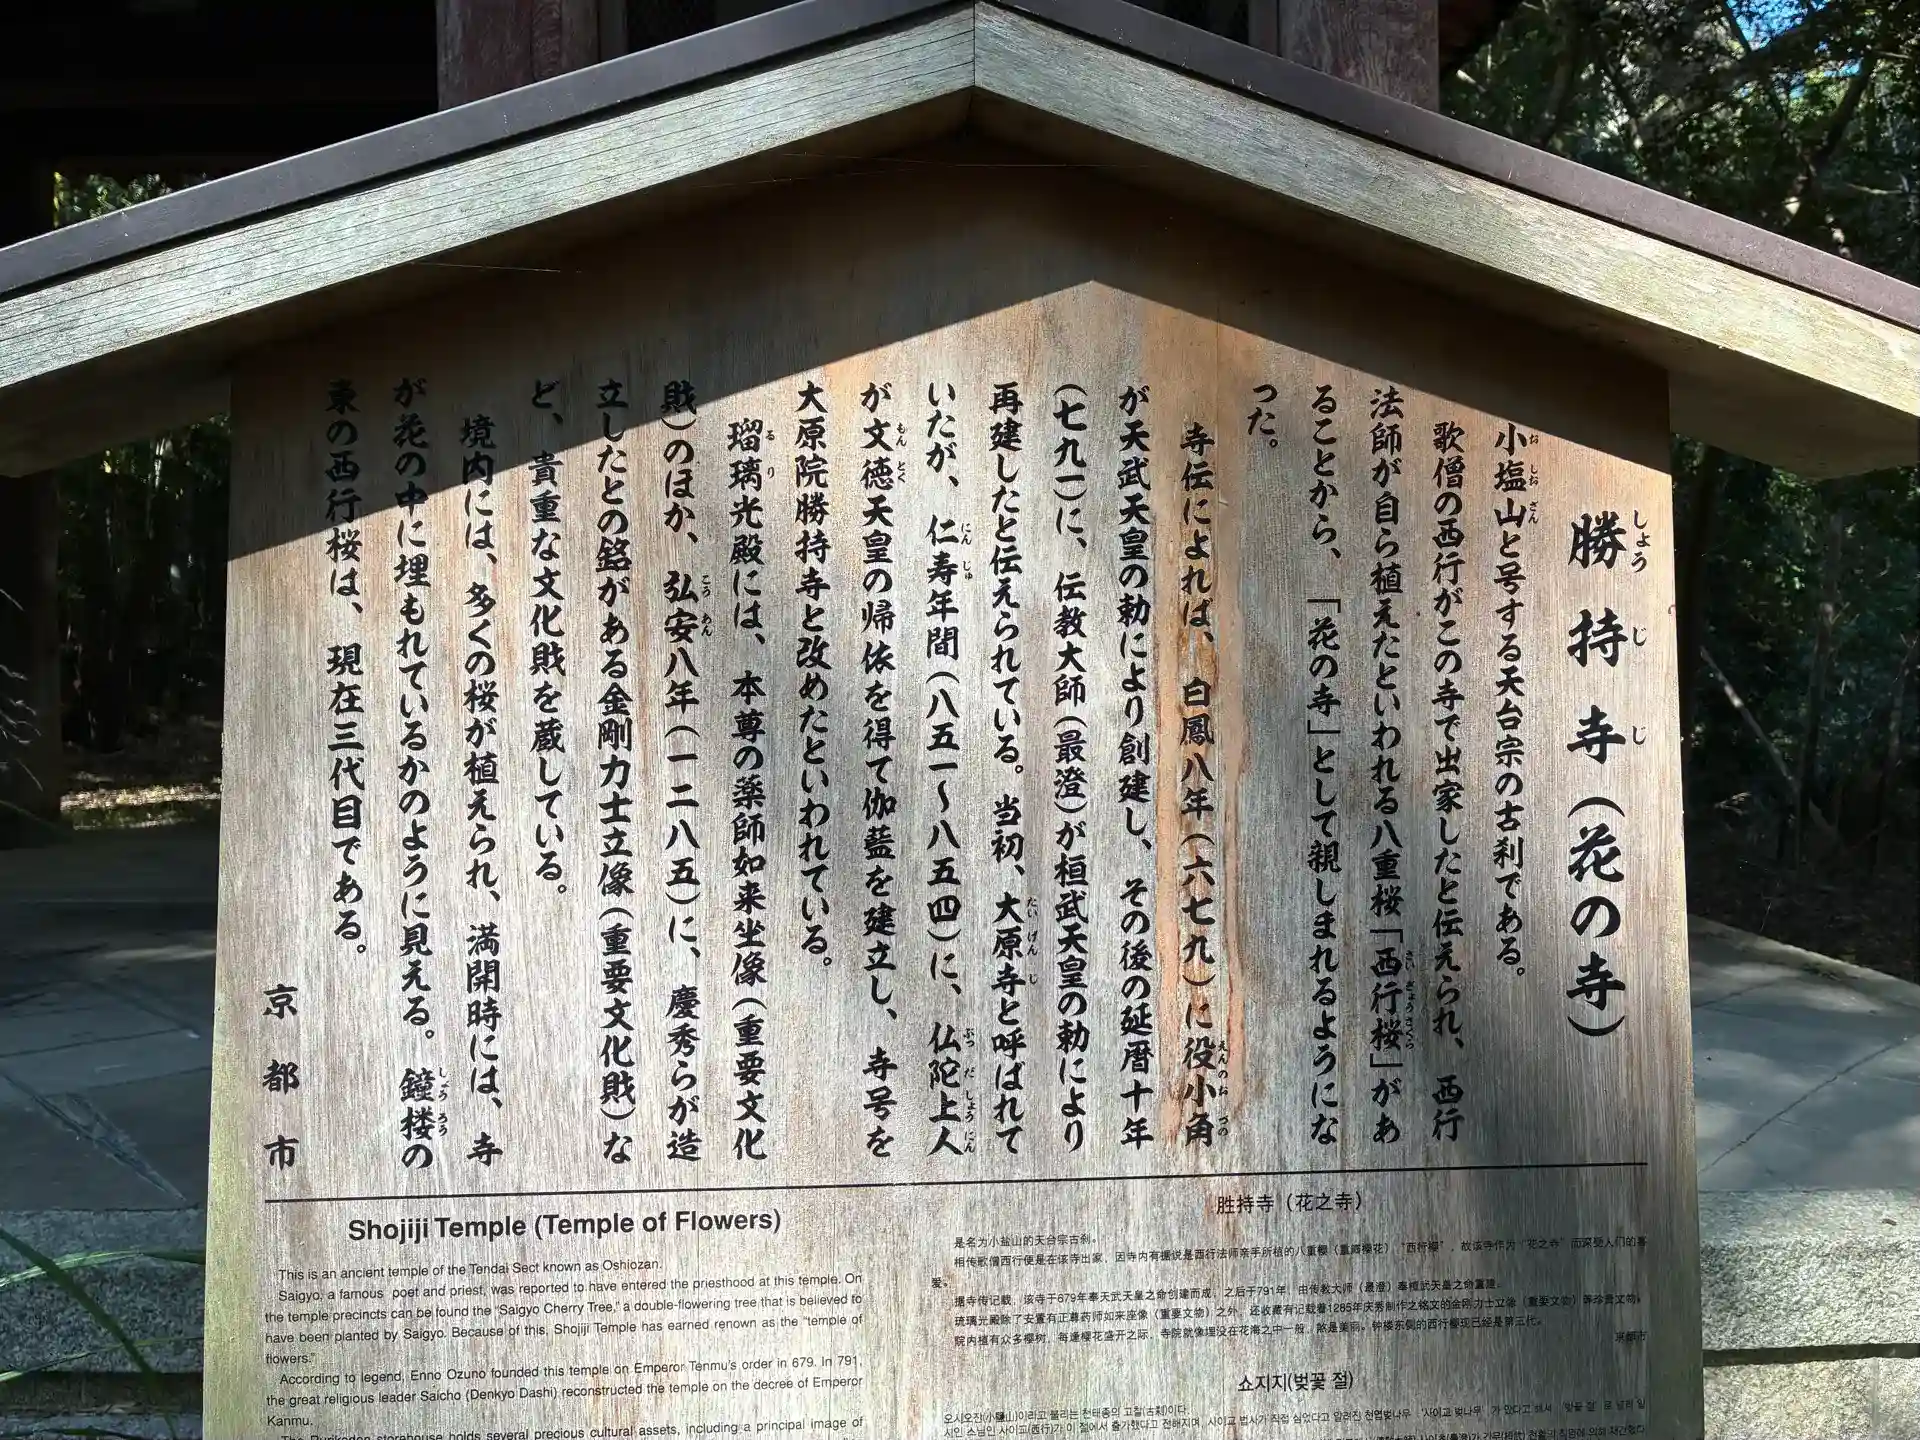 勝持寺（花の寺）
小塩山と号する天台宗の古刹である。
歌僧の西行がこの寺で出家したと伝えられ、西行
法師が自ら植えたといわれる八重桜「西行桜」があ
ることから、「花の寺」として親しまれるようにな
った。
寺伝によれば、白鳳八年（六七九）に役小角
が天武天皇の勅により創建し、その後の延暦十年
（七九一）に、伝教大師（最澄）が桓武天皇の勅により
再建したと伝えられている。当初、大原寺と呼ばれて
いたが、仁寿年間（八五一～八五四）に、仏陀上人
が文徳天皇の帰依を得て伽藍を建立し、寺号を
大原院勝持寺と改めたといわれている。
瑠璃光殿には、本尊の薬師如来坐像（重要文化
財）のほか、弘安八年（一二八五）に、慶秀らが造
立したとの銘がある金剛力士立像（重要文化財）な
ど、貴重な文化財を蔵している。
境内には、多くの桜が植えられ、満開時には、寺
が花の中に埋もれているかのように見える。鐘楼の
東の西行桜は、現在三代目である。
京都市
Shojiji Temple (Temple of Flowers)
This is an ancient temple of the Tendai Sect known as Oshiozan.
Saigyo, a famous poet and priest, was reported to have entered the priesthood at this temple. On
the temple precincts can be found the "Saigyo Cherry Tree," a double-flowering tree that is believed to
have been planted by Saigyo. Because of this, Shojiji Temple has earned renown as the "temple of
flowers."
According to legend, Enno Ozuno founded this temple on Emperor Tenmu's order in 679. In 791,
the great religious leader Saicho (Denkyo Dashi) reconstructed the temple on the decree of Emperor
Kanmu.
The Rurikoden storehouse holds several precious cultural assets, including a principal image of
胜持寺（花之寺）
是名为小盐山的天台宗古刹。
相传歌僧西行便是在该寺出家，因寺内有据说是西行法师亲手所植的八重樱（重瓣樱花）"西行樱"，故该寺作为"花之寺"而深受人们的喜
爱。
据寺传记载，该寺于679年奉天武天皇之命创建而成，之后于791年，由传教大师（最澄）奉桓武天皇之命重建。
琉璃光殿除了安置有正尊药师如来座像（重要文物）之外，还收藏有记载着1285年庆秀制作之铭文的金刚力士立像（重要文物）等珍贵文物。
院内植有众多樱树，每逢樱花盛开之际，寺院就像埋没在花海之中一般，煞是美丽。钟楼东侧的西行樱现已经是第三代。
京都市
쇼지지(벚꽃 절)
오시오잔(小鹽山)이라고 불리는 천태종의 고찰(古刹)이다.
시인 스님인 사이교(西行)가 이 절에서 출가했다고 전해지며, 사이교 법사가 직접 심었다고 알려진 천엽벚나무